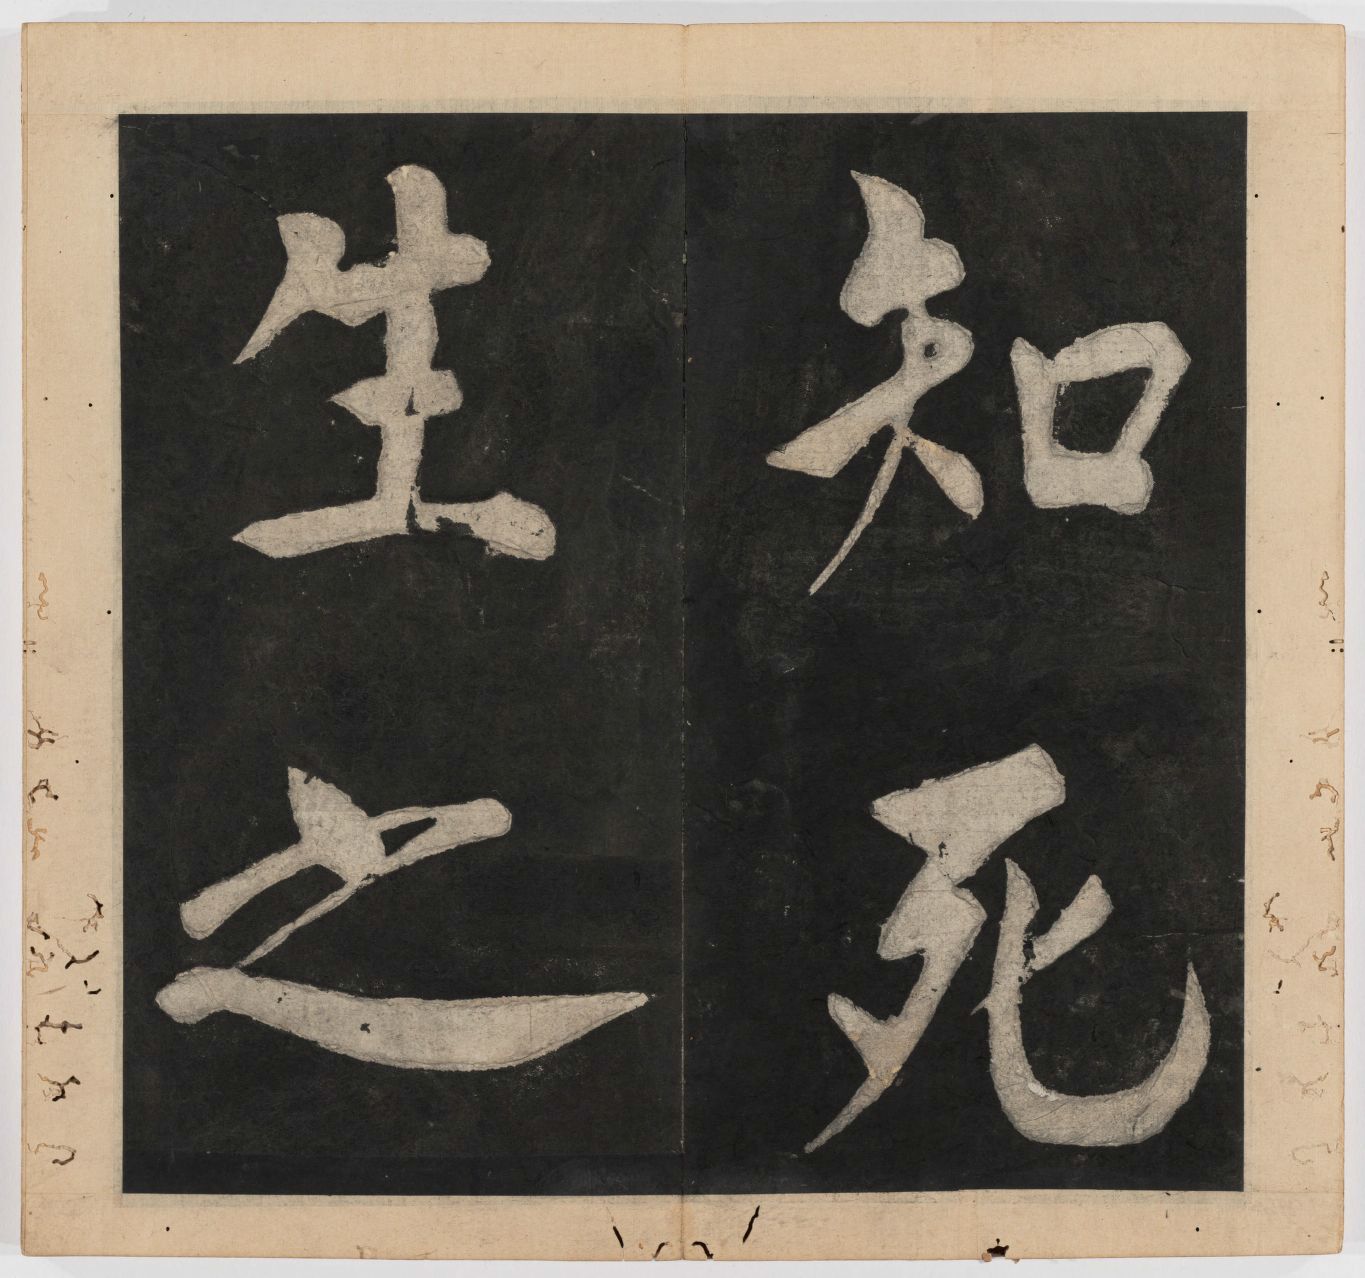 知死
生之